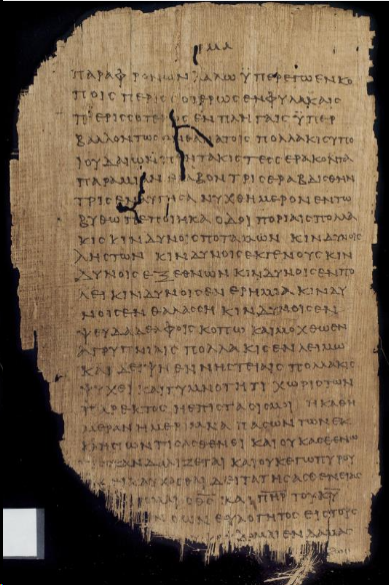 ΠΑΡΑΦΡΟΝΩΝ ΛΑΛΩ ΫΠΕΡ ΕΓΩ ΕΝ ΚΟ
ΠΟΙC ΠΕΡΙCCΟΤΕΡΩC ΕΝ ΦΥΛΑΚΑΙC
ΠΕΡΙCCΟΤΕΡΩC ΕΝ ΠΛΗΓΑΙC ΫΠΕΡ
ΒΑΛΛΟΝΤΩC ΕΝ ΘΑΝΑΤΟΙC ΠΟΛΛΑΚΙC ΥΠΟ
ΙΟΥΔΑΙΩΝ ΠΕΝΤΑΚΙC ΤΕCCΕΡΑΚΟΝΤΑ
ΠΑΡΑ ΜΙΑΝ ΕΛΑΒΟΝ ΤΡΙC ΕΡΑΒΔΙCΘΗΝ
ΤΡΙC ΕΝΑΥΑΓΗCΑ ΝΥΧΘΗΜΕΡΟΝ ΕΝ ΤΩ
ΒΥΘΩ ΠΕΠΟΙΗΚΑ ΟΔΟΙΠΟΡΙΑΙC ΠΟΛΛΑ
ΚΙC ΚΙΝΔΥΝΟΙC ΠΟΤΑΜΩΝ ΚΙΝΔΥΝΟΙC
ΛΗCΤΩΝ ΚΙΝΔΥΝΟΙC ΕΚ ΓΕΝΟΥC ΚΙΝ
ΔΥΝΟΙC ΕΞ ΕΘΝΩΝ ΚΙΝΔΥΝΟΙC ΕΝ ΠΟ
ΛΕΙ ΚΙΝΔΥΝΟΙC ΕΝ ΕΡΗΜΙΑ ΚΙΝΔΥ
ΝΟΙC ΕΝ ΘΑΛΑCCΗ ΚΙΝΔΥΝΟΙC ΕΝ
ΨΕΥΔΑΔΕΛΦΟΙC ΚΟΠΩ ΚΑΙ ΜΟΧΘΩ ΕΝ
ΑΓΡΥΠΝΙΑΙC ΠΟΛΛΑΚΙC ΕΝ ΛΕΙΜΩ
ΚΑΙ ΔΕΙΨΗ ΕΝ ΝΗCΤΕΙΑΙC ΠΟΛΛΑΚΙC
ΨΥΧΕΙ ΚΑΙ ΓΥΜΝΟΤΗΤΙ ΧΩΡΙC ΤΩΝ
ΠΑΡΕΚΤΟC Η ΕΠΙCΤΑCΙC ΜΟΙ Η ΚΑΘΗ
ΜΕΡΑΝ Η ΜΕΡΙΜΝΑ ΠΑCΩΝ ΤΩΝ ΕΚ
ΚΛΗCΙΩΝ ΤΙC ΑCΘΕΝΕΙ ΚΑΙ ΟΥΚ ΑCΘΕΝΩ
CΚΑΝΔΑΛΙΖΕΤΑΙ ΚΑΙ ΟΥΚ ΕΓΩ ΠΥΡΟΥ
ΚΑΥΧΑCΘΑΙ ΔΕΙ ΤΑ ΤΗC ΑCΘΕΝΕΙΑC
Ο Θ̅C̅ ΚΑΙ ΠΗΡ ΤΟΥ Κ̅Υ̅
ΩΝ ΕΥΛΟΓΗΤΟC ΕΙC ΤΟΥC